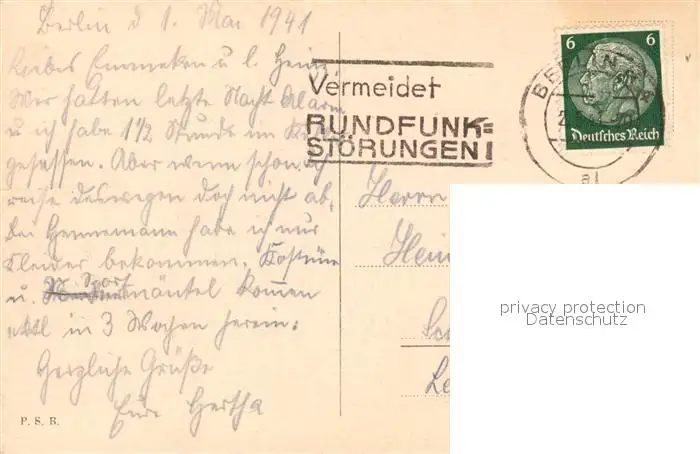 Berlin d 1. Mai 1941
Liebes Emmeken u l. Hein,
Wir hatten letzte Nacht Alarm
u ich habe 1 1/2 Stunde im Keller
gesessen. Aber wenn schon, ich
reise deswegen doch nicht ab.
Bei Hennemann habe ich nur
Kleider bekommen. Kostüme
u. Sportmäntel kommen
in 3 Wochen herein.
Herzliche Grüße
Eure Hertha
P. S. B.
Vermeidet
RUNDFUNK=
STÖRUNGEN!
BERLIN
a1
6 6
Deutsches Reich
Herrn
Hein
privacy protection
Datenschutz